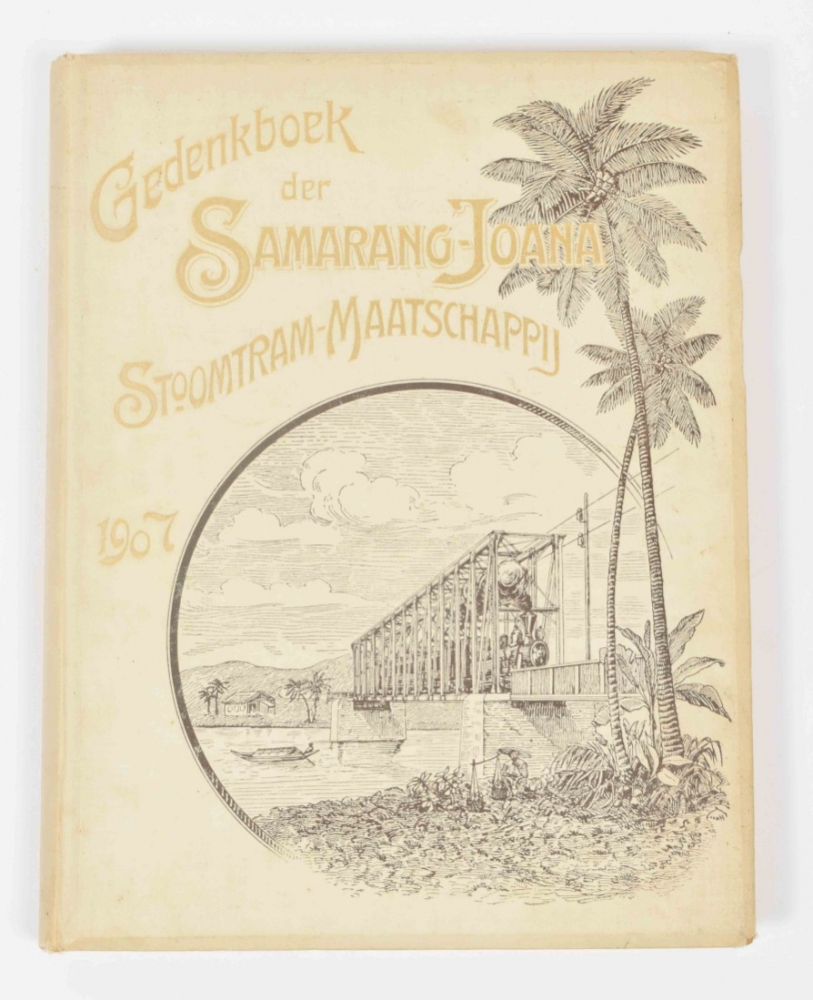 Gedenkboek
der
SAMARANG-JOANA
STOOMTRAM-MAATSCHAPPIJ
1907